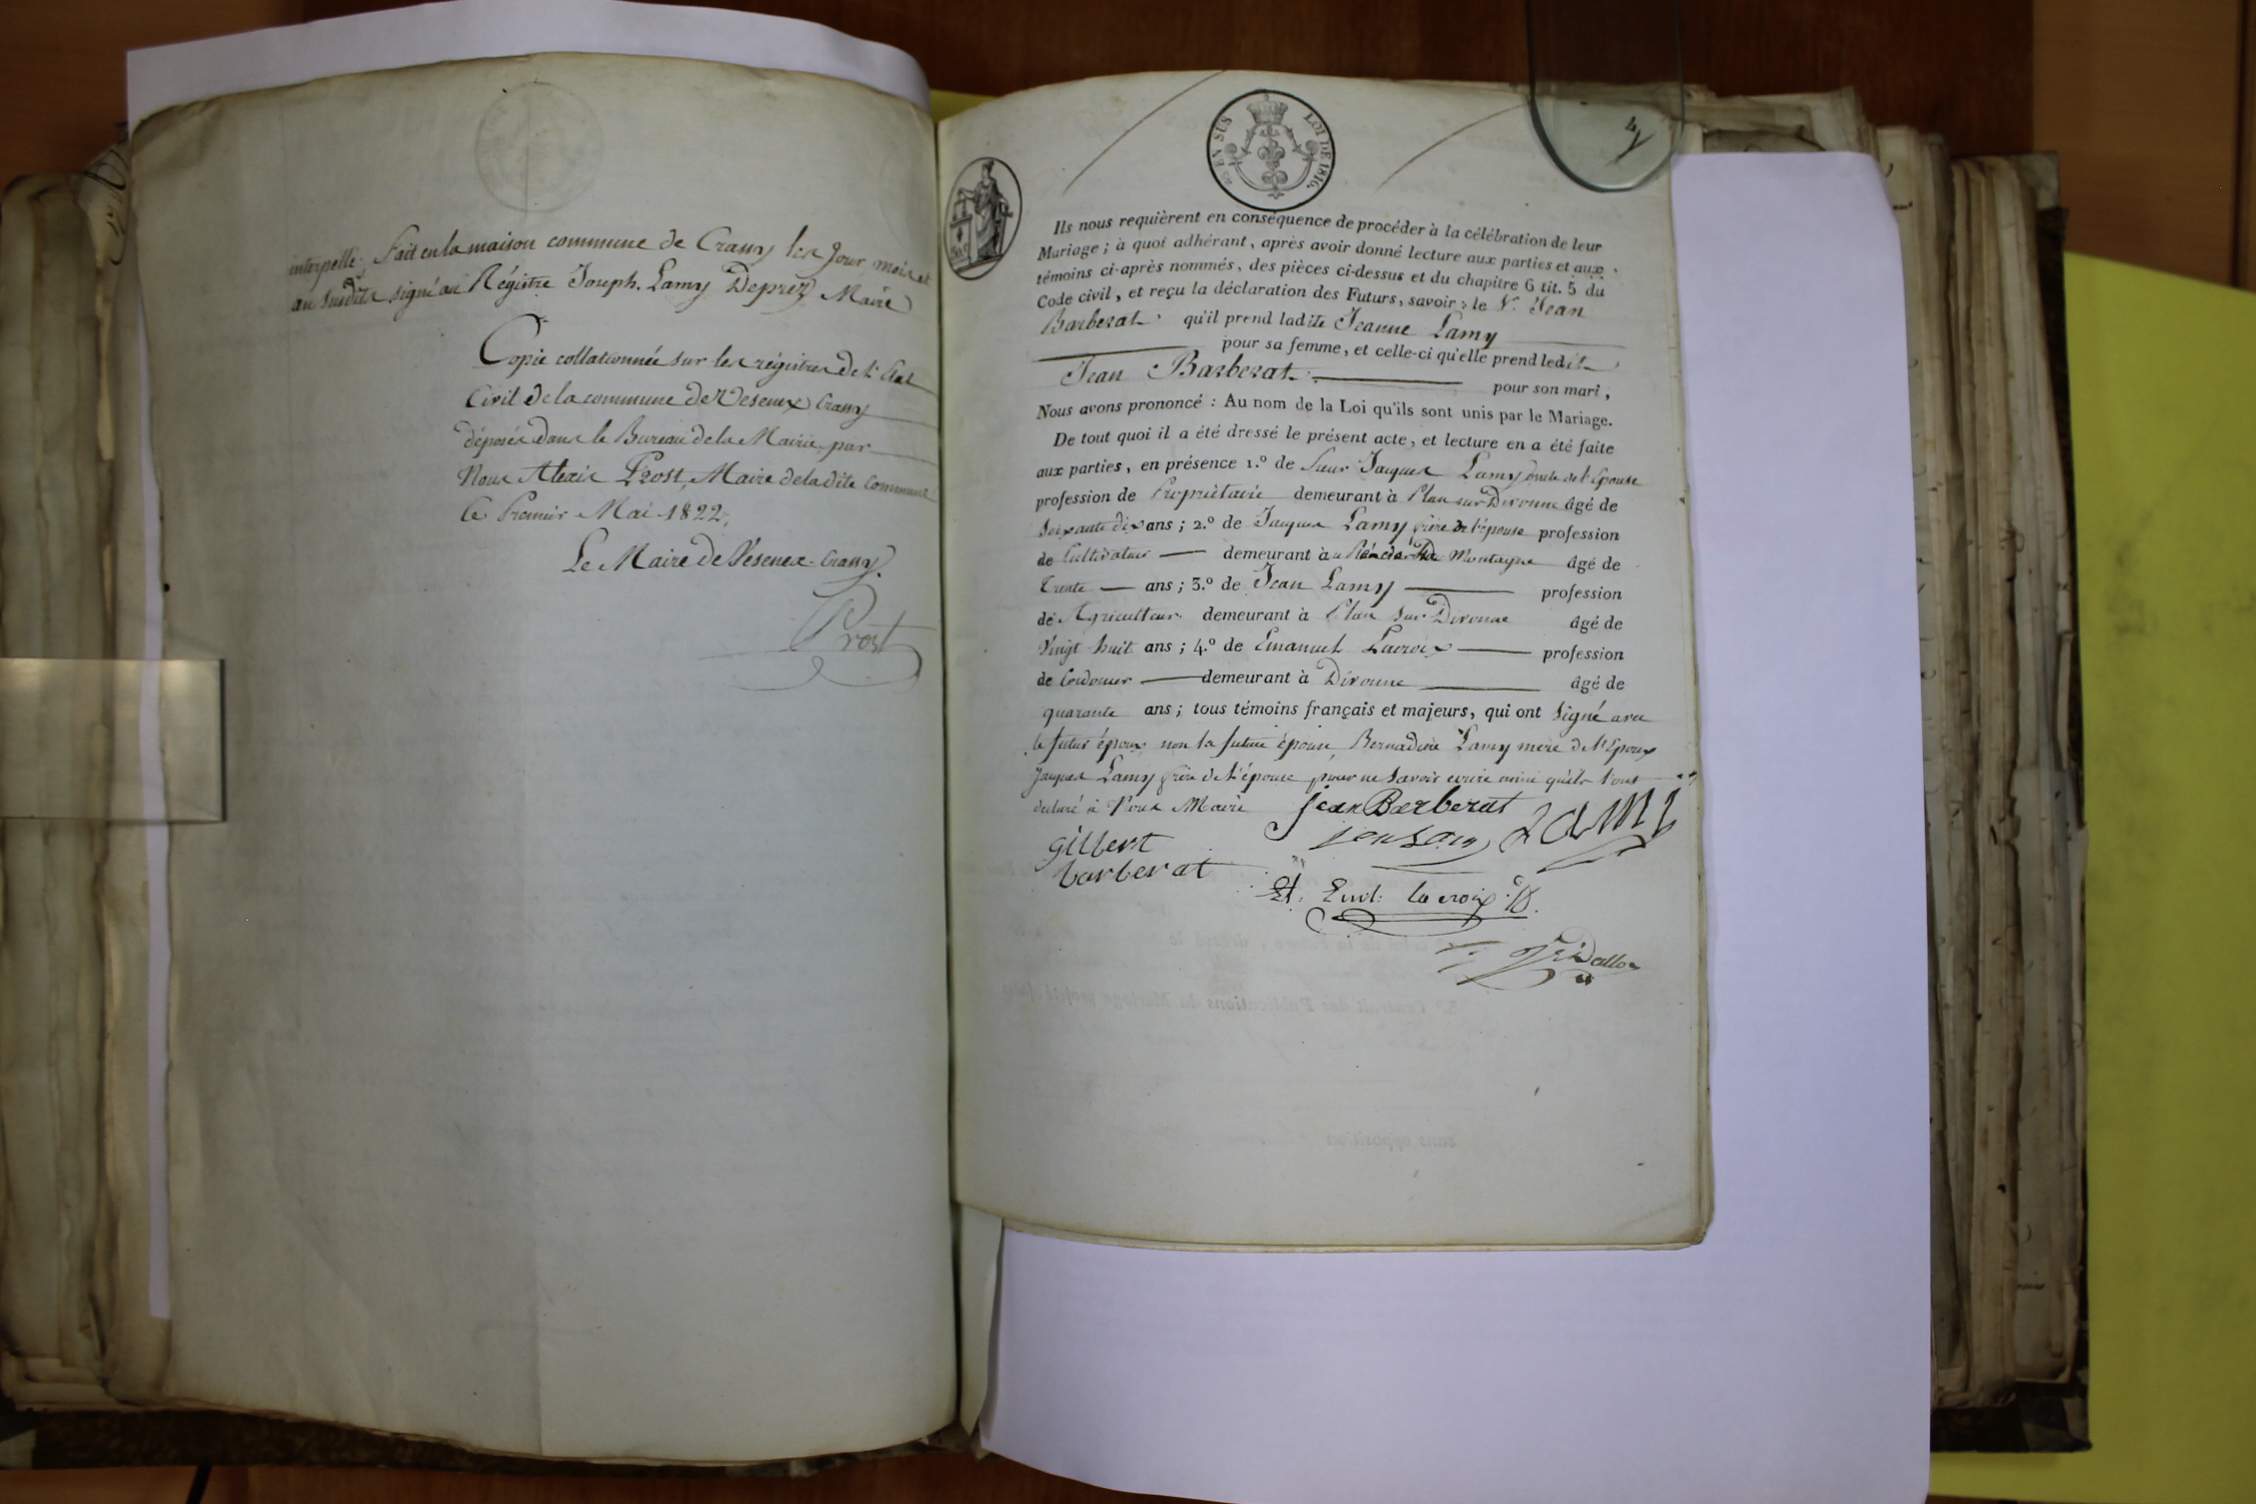 interpellé; Fait en la maison commune de Crassy les Jour, mois et
an susdits signé au Régistre Joseph. Lamy Deprez Maire
Copie collationnée sur les régistres de l'Etat
Civil de la commune de Vesenex Crassy
déposés dans le Bureau de la Mairie, par
Nous Alexis Prost, Maire de la dite Commune
le Premier Mai 1822.
Le Maire de Vesenex-Crassy.
Prost
EN SUS LOI DE 1816.
4
Ils nous requièrent en conséquence de procéder à la célébration de leur
Mariage ; à quoi adhérant, après avoir donné lecture aux parties et aux
témoins ci-après nommés, des pièces ci-dessus et du chapitre 6 tit. 5 du
Code civil, et reçu la déclaration des Futurs, savoir : le Sr Jean
Barberat qu'il prend ladite Jeanne Lamy
pour sa femme, et celle-ci qu'elle prend ledit
Jean Barberat pour son mari,
Nous avons prononcé : Au nom de la Loi qu'ils sont unis par le Mariage.
De tout quoi il a été dressé le présent acte, et lecture en a été faite
aux parties, en présence 1.º de Sieur Jaques Lamy oncle de l'Epouse
profession de Propriétaire demeurant à Plan sur Divonne âgé de
Soixante dix ans ; 2.º de Jaques Lamy frère de l'épouse profession
de Cultivateur demeurant à Montagne âgé de
Trente ans ; 3.º de Jean Lamy profession
de Agriculteur demeurant à Plan sur Divonne âgé de
Vingt huit ans ; 4.º de Emanuel Lacroix profession
de Cordonier demeurant à Divonne âgé de
quarante ans ; tous témoins français et majeurs, qui ont Signé avec
le futur époux non la future épouse, Bernadine Lamy mère de l'Epoux
Jaques Lamy frère de l'épouse pour ne Savoir ecrire ainsi qu'ils l'ont
declaré à Nous Maire jean Barberat
gilbert jenson Lami
barberat
Eml: la croix